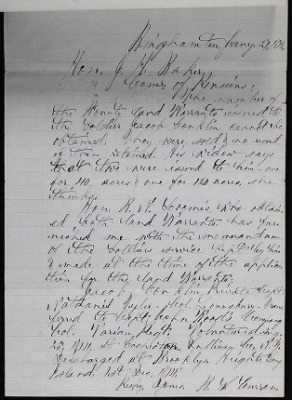 Hon. J. H. Baker,
Comr of Pensions:
The number of
the Bounty Land Warrants issued to
the soldier Jacob Conklin cannot be
obtained. They were sold & no record
of them retained. His widow says
that two were issued to him - one
for 40 acres & one for 120 acres, she
thinks.
Hon. R. W. Loomis, who obtain-
ed both Land Warrants has fur-
nished me with the memorandum
of the soldier's service kept by him
& made at the time of the applica-
tion for the Land Warrants.
Jacob Conklin, Private Capt.
Nathaniel Tyler, Col.
Capt. Wood's Company
Col. Regt. Volunteered
1814, at
Discharged at Brooklyn Heights Long
Island, 1st Dec. 1814.